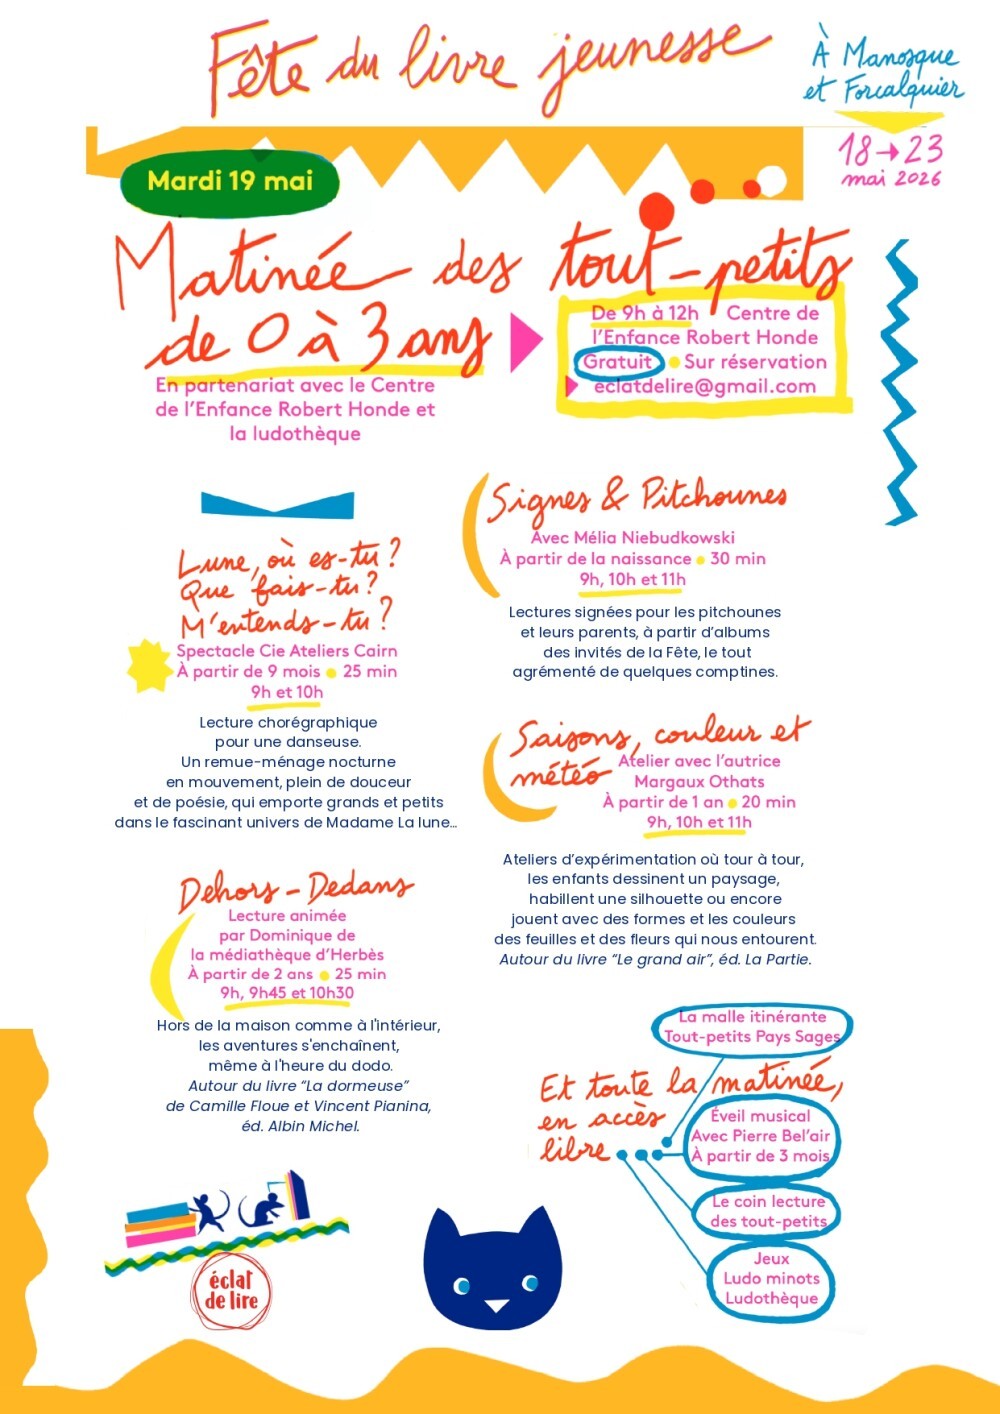 Fête du livre jeunesse
À Manosque
et Forcalquier
18→23
mai 2026
Mardi 19 mai
Matinée des tout-petits
de 0 à 3 ans
De 9h à 12h Centre de
l'Enfance Robert Honde
Gratuit • Sur réservation
eclatdelire@gmail.com
En partenariat avec le Centre
de l'Enfance Robert Honde et
la ludothèque
Lune, où es-tu ?
Que fais-tu ?
M'entends-tu ?
Spectacle Cie Ateliers Cairn
À partir de 9 mois • 25 min
9h et 10h
Lecture chorégraphique
pour une danseuse.
Un remue-ménage nocturne
en mouvement, plein de douceur
et de poésie, qui emporte grands et petits
dans le fascinant univers de Madame La lune...
Dehors - Dedans
Lecture animée
par Dominique de
la médiathèque d'Herbès
À partir de 2 ans • 25 min
9h, 9h45 et 10h30
Hors de la maison comme à l'intérieur,
les aventures s'enchaînent,
même à l'heure du dodo.
Autour du livre “La dormeuse”
de Camille Floue et Vincent Pianina,
éd. Albin Michel.
Signes & Pitchounes
Avec Mélia Niebudkowski
À partir de la naissance • 30 min
9h, 10h et 11h
Lectures signées pour les pitchounes
et leurs parents, à partir d'albums
des invités de la Fête, le tout
agrémenté de quelques comptines.
Saisons, couleur et
météo
Atelier avec l'autrice
Margaux Othats
À partir de 1 an • 20 min
9h, 10h et 11h
Ateliers d'expérimentation où tour à tour,
les enfants dessinent un paysage,
habillent une silhouette ou encore
jouent avec des formes et les couleurs
des feuilles et des fleurs qui nous entourent.
Autour du livre “Le grand air”, éd. La Partie.
La malle itinérante
Tout-petits Pays Sages
Et toute la matinée,
en accès
libre
Éveil musical
Avec Pierre Bel'air
À partir de 3 mois
Le coin lecture
des tout-petits
Jeux
Ludo minots
Ludothèque
éclat
de lire